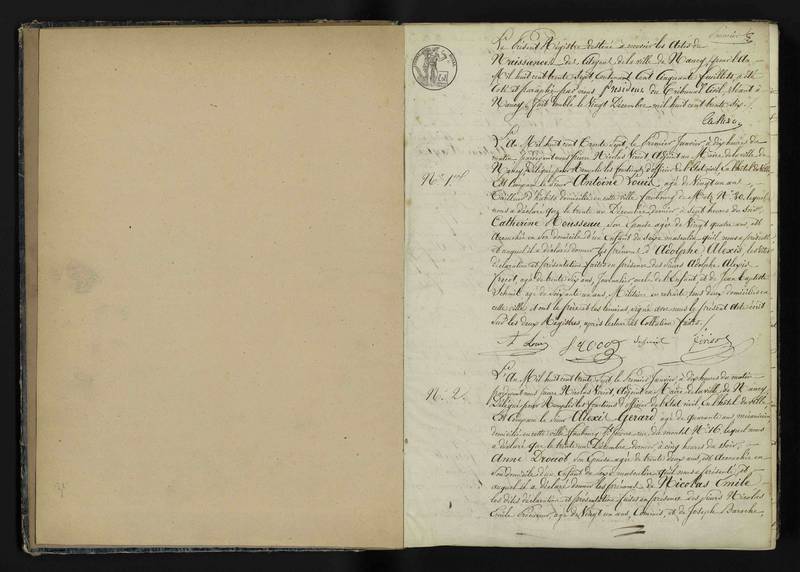 Premier
Le Présent Registre destiné a recevoir les Actes de
Naissances des citoyens de la ville de Nancy, pour l'An
Mil huit cent trente sept Contenant Cent Cinquante feuillets, a été
Coté et paraphé par nous Président du Tribunal Civil, séant à
Nancy, fait double le Vingt Décembre mil huit cent trente six.
L'An Mil huit cent trente Sept, le Premier Janvier, à dix heures du
matin, pardevant nous Pierre Nicolas Voirst Adjoint au Maire de la ville de
Nancy Délégué pour Remplir les fonctions d'Officier de l'Etat civil, En l'hôtel de Ville
N.º 1.er Est Comparu le Sieur Antoine Louis, agé de Vingt un ans
Tailleur d'habits domicilié en cette ville faubourg de Metz N.º 30 lequel
nous a déclaré que le trente un Décembre dernier à sept heures du soir,
Catherine Rousseau, son Epouse agée de Vingt quatre ans, est
Accouchée en son domicile d'un Enfant du sexe masculin qu'il nous a présenté
et auquel il a déclaré donner les prénoms d'Adolphe Alexis, les dites
déclaration et présentation faites en présence des Sieurs Adolphe Alexis
agé de trente ans, Journalier, oncle de l'Enfant, et de Jean Baptiste
Schmit agé de soixante un ans, Militaire en retraite tous deux domiciliés en
cette ville dont le père et les témoins, signé avec nous le présent Acte écrit
sur les deux Registres, après lecture et Collation faites.
A Louis Schmit
L'An Mil huit cent trente Sept le Premier Janvier, à dix heures du matin
pardevant nous Pierre Nicolas Voirst, Adjoint au Maire de la ville de Nancy
N.º 2. Délégué pour Remplir les fonctions d'Officier de l'Etat civil En l'hôtel de Ville
Est Comparu le Sieur Alexis Gerard agé de quarante ans, mécanicien
domicilié en cette ville faubourg St Pierre rue N.º 16, lequel nous
a déclaré que le trente un Décembre dernier, à cinq heures du soir,
Anne Drouot son Epouse agée de trente deux ans, est Accouchée en
son domicile d'un Enfant du sexe masculin qu'il nous a présenté et
auquel il a déclaré donner les prénoms de Nicolas Emile
les dites déclaration et présentation faites en présence des Sieurs Nicolas
Emile agé de Vingt un ans, Commis, et de Joseph Barache,